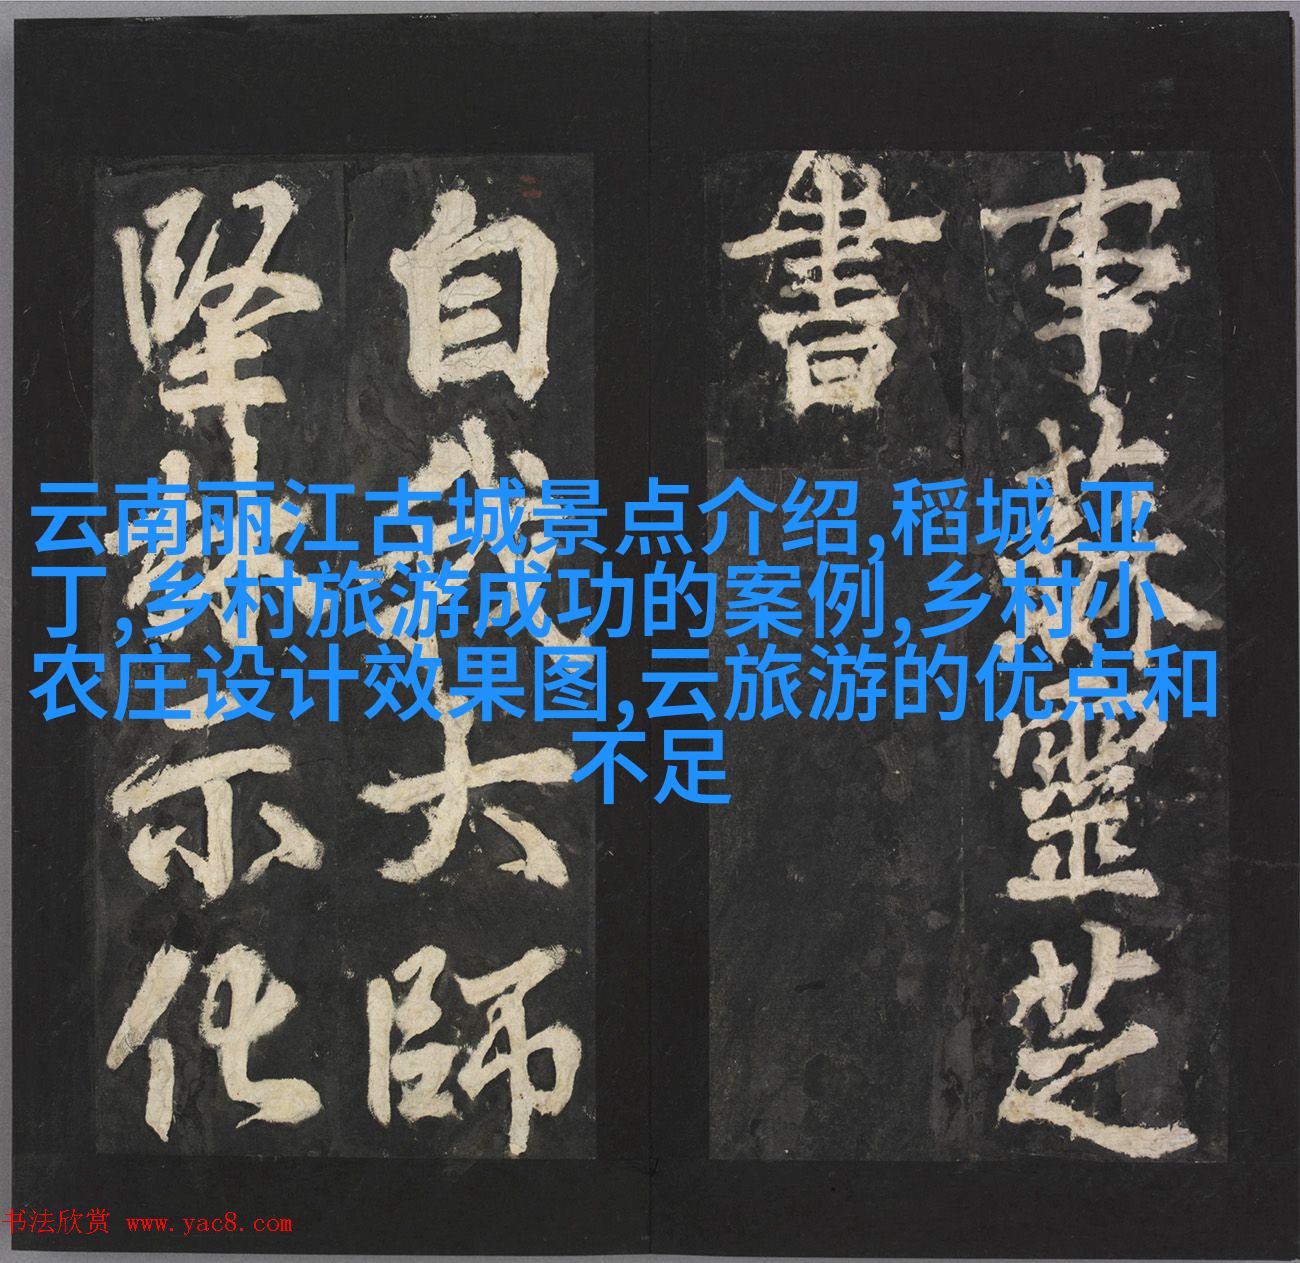 事蘇靈芝
書
自我大師
堅林示化
云南丽江古城景点介绍,稻城 亚
丁,乡村旅游成功的案例,乡村小
农庄设计效果图,云旅游的优点和
不足
书法欣赏 www.yac8.com